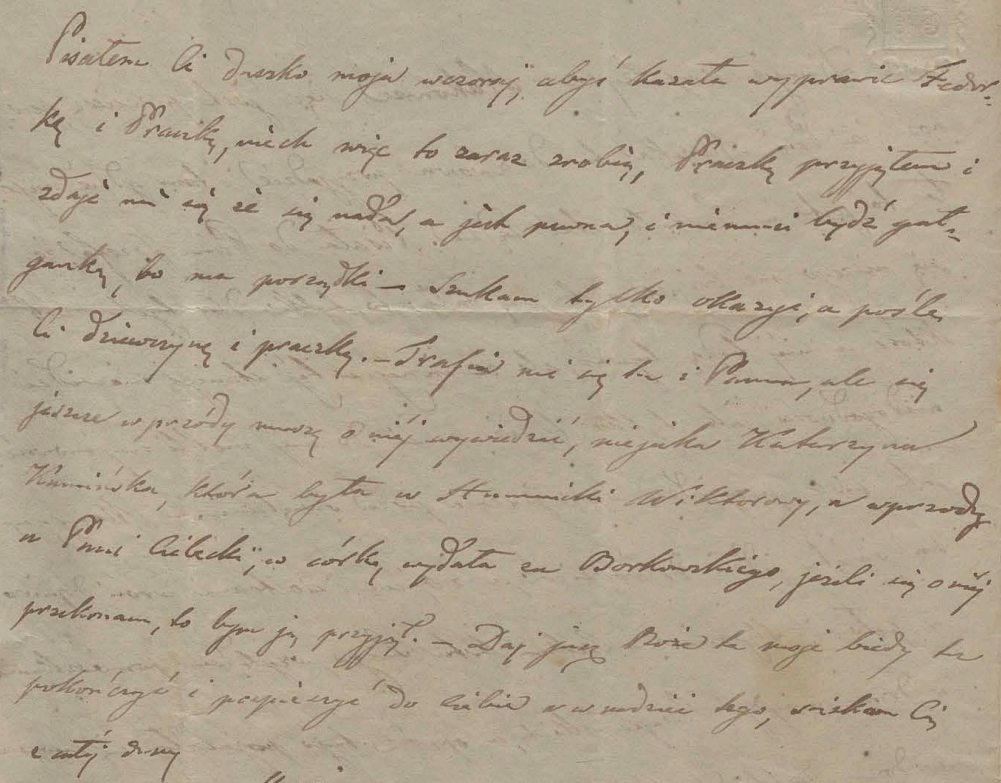 Pisałem Ci duszko moja wczoraj, abyś kazała wyprawić Fedor-
kę i Praczkę, niech więc to zaraz zrobią, Praczkę przyjąłem i
zdaje mi się że się nada, a jest pewna, i niemusi bydź gał-
ganką, bo ma porządki — Szukam tylko okazyi, a poślę
Ci dziewczynę i praczkę. — Trafia mi się tu i Panna, ale się
jeszcze wprzódy muszę o niéj wywiedzić, niejaka Katarzyna
Kamińska, która była u Humnicki Wiktorowy, a wprzody
u Pani Cielecki, co córkę wydała za Borkowskiego, jeżeli się o niéj
przekonam, to bym ją przyjął. — Daj już Boże te moje biedy tu
pokończyć i pospieszyć do Ciebie w nadziei tego, ściskam Cię
z całéj duszy